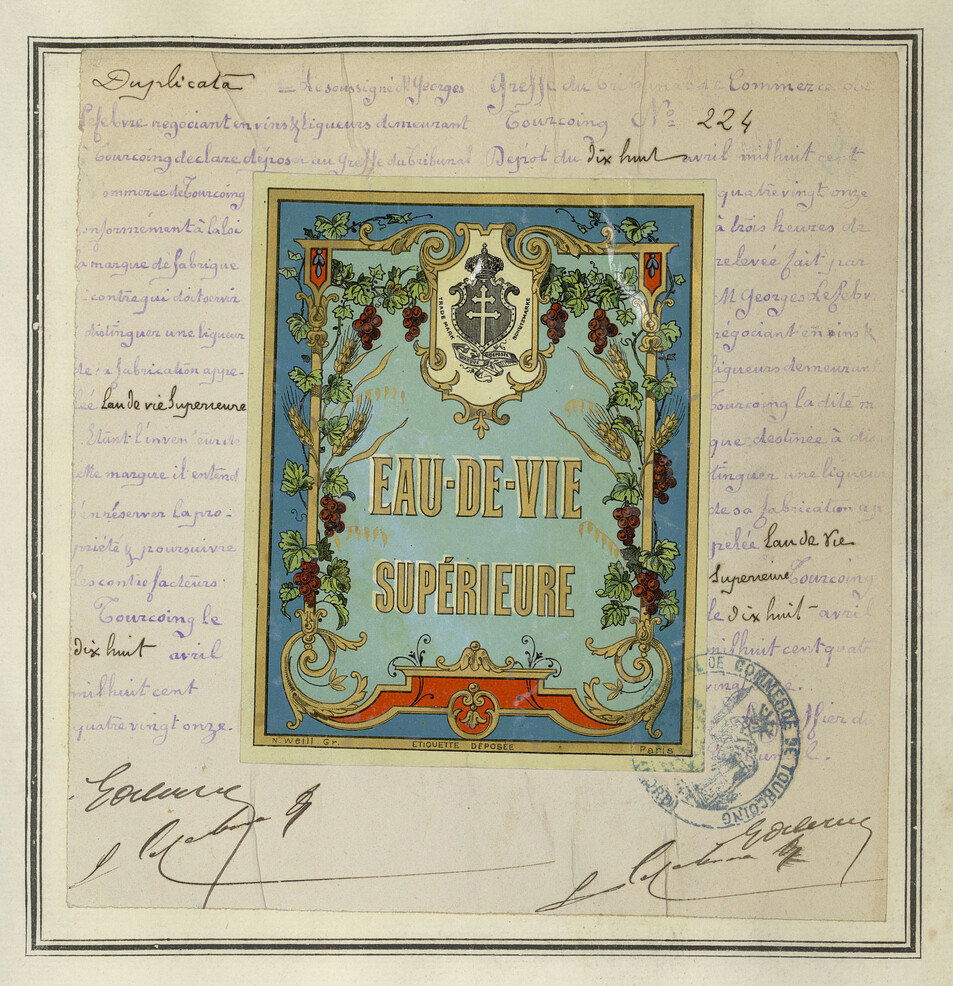 Duplicata
Je soussigné M Georges
Lefebvre négociant en vins & liqueurs demeurant
Tourcoing déclare déposer au Greffe du Tribunal
ommerce de Tourcoing
onformément à la loi
a marque de fabrique
contre qui doit servir
distinguer une liqueur
de sa fabrication appe-
lée Eau de vie Superieure
Etant l'inventeur de
cette marque il entend
s'en réserver la pro-
priété & poursuivre
les contrefacteurs.
Tourcoing le
dix huit avril
mil huit cent
quatre vingt onze.
Greffe du Commerce de
Tourcoing No 224
Dépôt du dix huit avril mil huit cent
quatre vingt onze
à trois heures de
relevée fait par
M Georges Lefebv
négociant en vins &
liqueurs demeurant
Tourcoing la dite m
que destinée à dis
tinguer une liqueur
de sa fabrication ap
pelée Eau de Vie
Superieure Tourcoing
le dix huit avril
mil huit cent quatr
TRADE MARK
SCHUTZMARKE
EAU-DE-VIE
SUPÉRIEURE
N. Weill. Gr.
ETIQUETTE DÉPOSÉE
Paris
DE COMMERCE DE TOURCOING